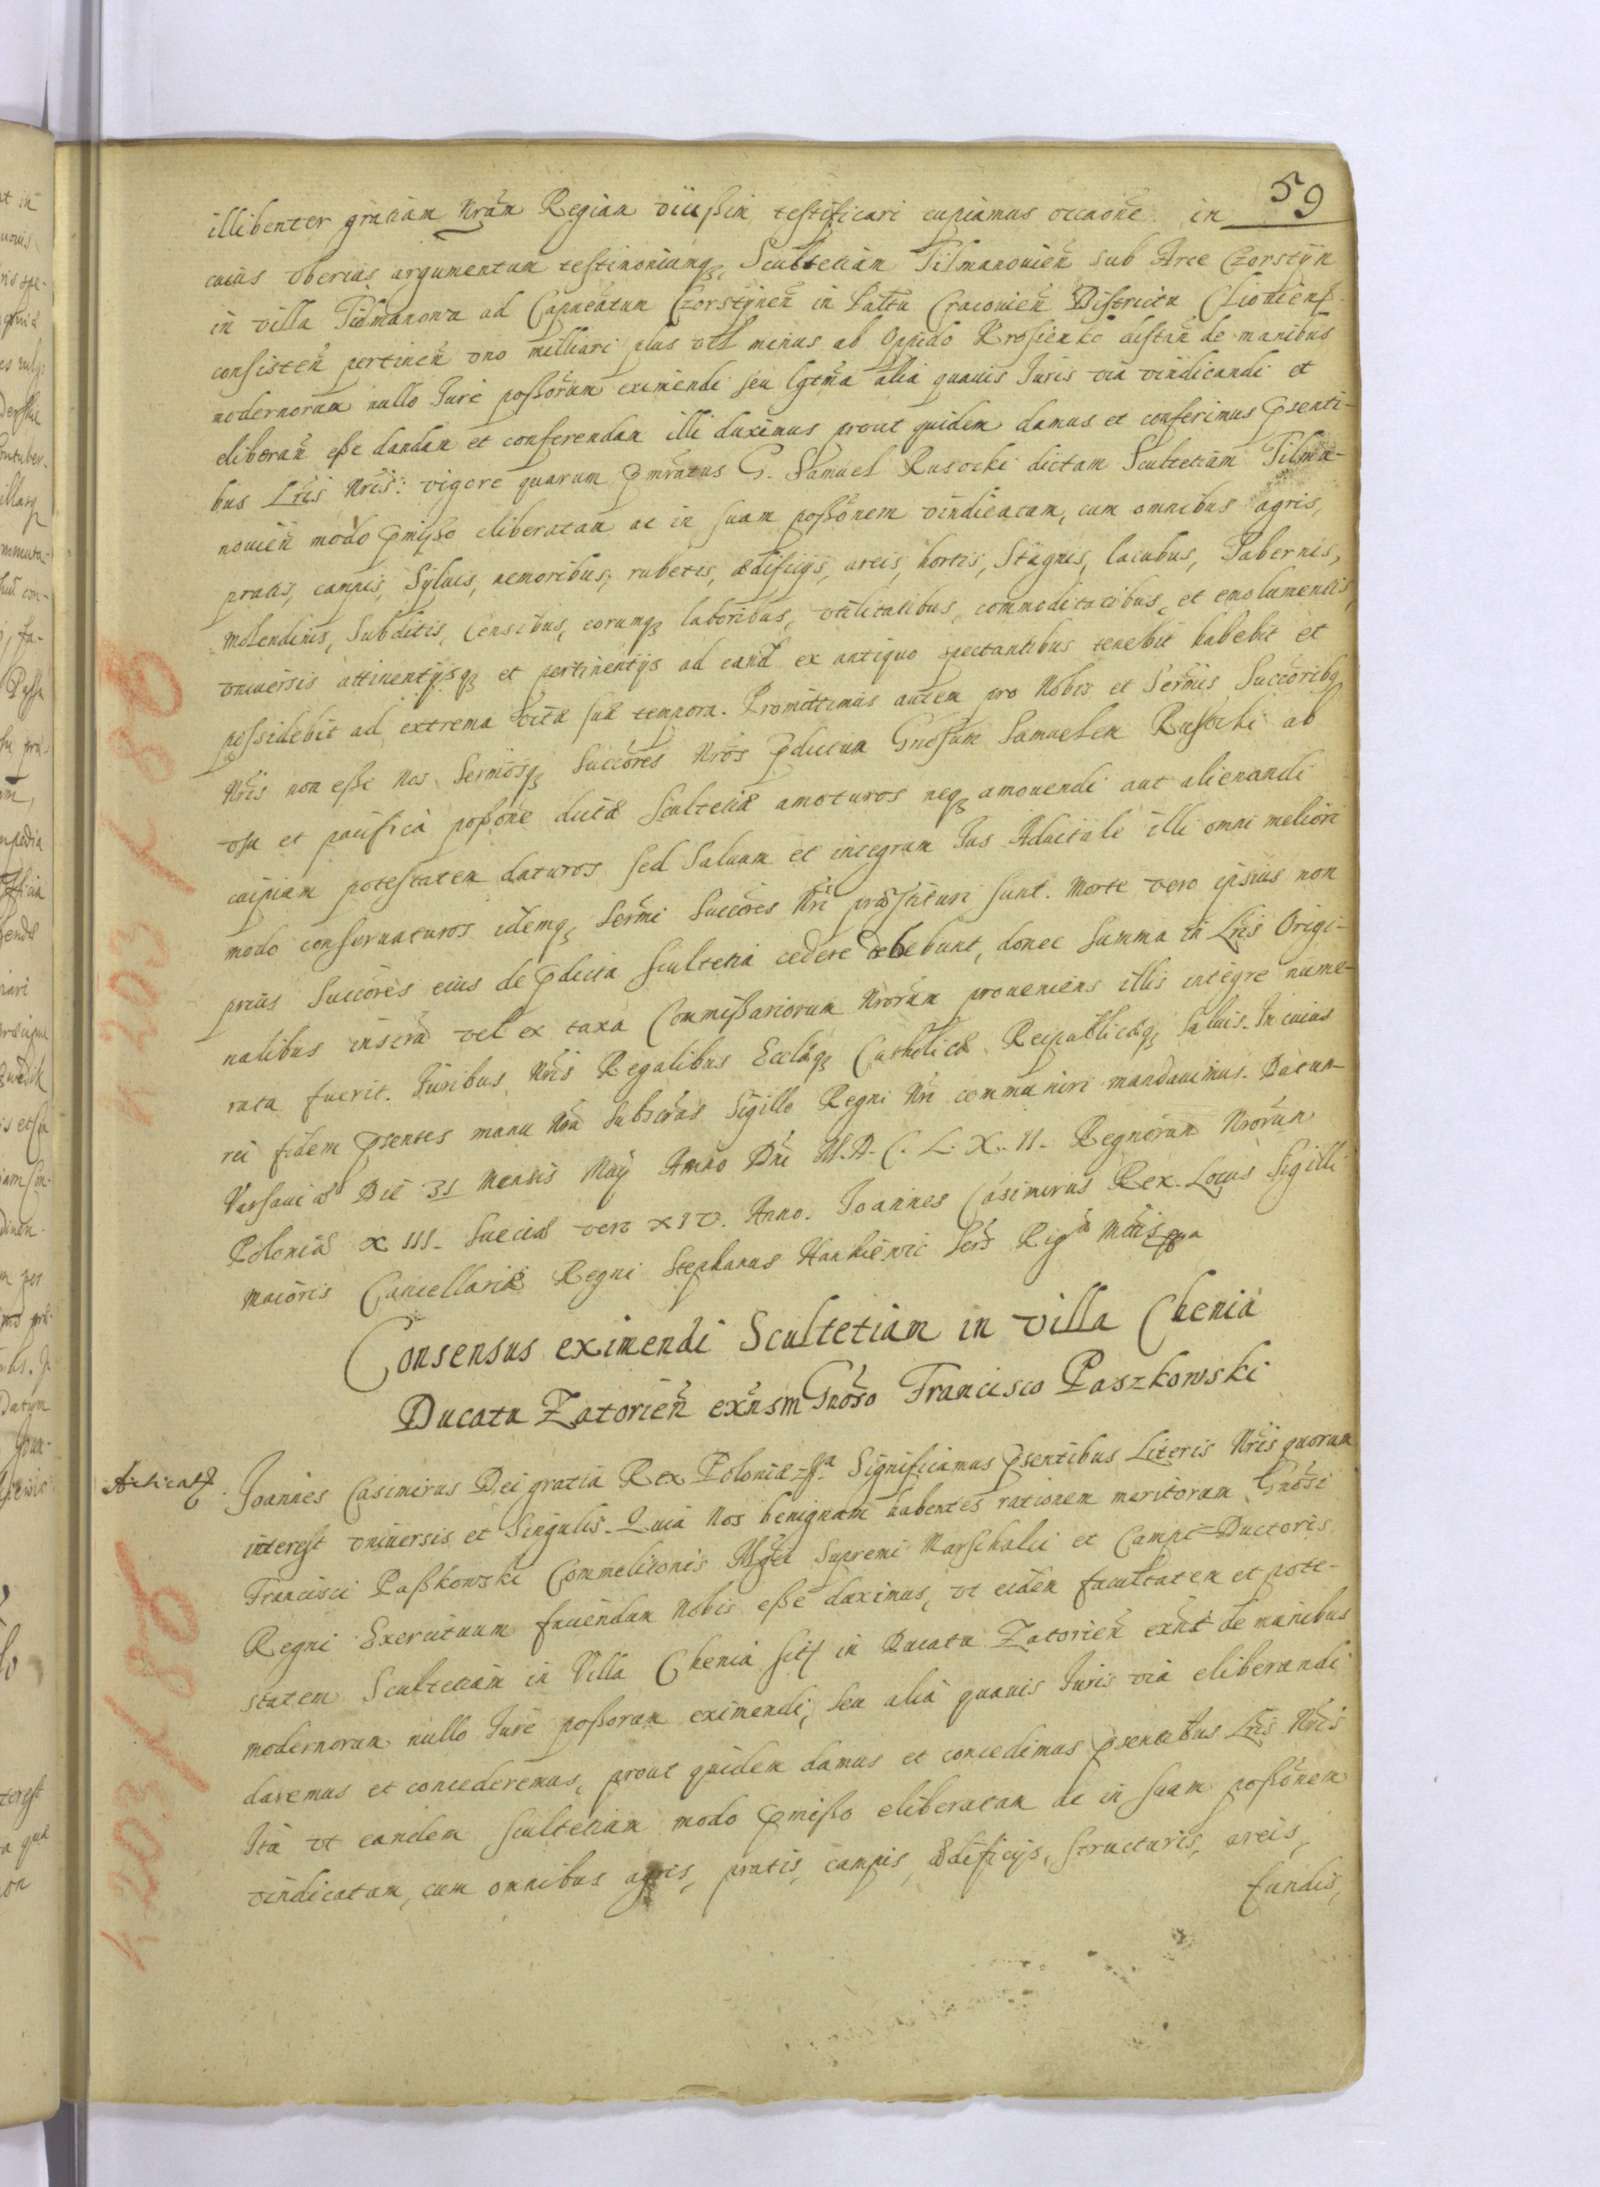 59
illibenter gratiam Nrãm Regiam viciẞim testificari cupiamus occaõne in
cuius vberius argumentum testimoniumq; Scultetiam Tilmanouieñ sub Arce Czorstyn
in villa Tidmanowa ad Capneatum Czorstyneñ in Pallũ Cracouieñ Districtu
consisteñ pertineñ vno milliari plus vel minus ab Oppido Krosienko distañ de manibus
modernorum nullo Iure poẞorum eximendi seu lgtma alia quauis Iuris via vindicandi et
eliberañ eẞe dandam et conferendam illi duximus prout quidem damus et conferimus pñsenti-
bus Lris Nris: vigore quarum pmratus G. Samuel Rusocki dictam Scultetiam Tilma-
nouieñ modo pmiẞo eliberatam ac in suam poẞõnem vindicatam, cum omnibus agris,
pratis, campis, Syluis, nemoribus, rubetis, ædificijs, areis, hortis, Stagnis, lacubus, Tabernis,
Molendinis, Subditis, Censibus, eorumq; laboribus, vtilitatibus, commoditatibus, et emolumentis,
vniuersis attinentijsq; et pertinentijs ad eand ex antiquo spectantibus tenebit habebit et
possidebit ad extrema vitæ suæ tempora. Promittimus autem pro Nobis et Sermis Succoribq;
Nris non eẞe Nos Sermosq; Succores Nros pdictum Gnosum Samuelem Rusocki ab
vsu et pacifica poẞone dictæ Scultetiæ amoturos neq; amouendi aut alienandi
cuipiam potestatem daturos sed Saluum et integrum Ius Aduitale illi omni meliori
modo conseruaturos idemq; Sermi Succores Nri præstituri sunt. Morte vero ipsius non
prius Succores eius de pdicta Scultetia cedere debebunt, donec Summa in Lris Origi-
nalibus inserta vel ex taxa Commiẞariorum Nrorum proueniens illis integre nume-
rata fuerit. Iuribus Nris Regalibus Ecclæq; Catholicæ Reipublicæq; Saluis. In cuius
rei fidem pñsentes manu Nra Subscras Sigillo Regni Nri communiri mandauimus. Datum
Varsauiæ Die 31 Mensis Maÿ Anno Dni M.D.C.L.X.II. Regnorum Nrorum
Poloniæ XIII. Sueciæ vero XIV. Anno. Ioannes Casimirus Rex. Locus Sigilli
Maioris Cancellariæ Regni Stephanus Hankiewic Sers Rigæ Mtis
Consensus eximendi Scultetiam in villa Chenia
Ducatu Zatorieñ exñsm Gnoso Francisco Paszkowski
Ioannes Casimirus Dei gratia Rex Poloniæ Significamus pñsentibus Literis Nris quorum
interest vniuersis et Singulis. Quia Nos benignam habentes rationem meritorum Gnosi
Francisci Paẞkowski Commelitonis Supremi Marschalci et Campi Ductoris
Regni Exercituum faciendum Nobis eẞe duximus, vt eidem facultatem et pote-
statem Scultetiam in Villa Chenia in Ducatu Zatorieñ exñst de manibus
modernorum nullo Iure poẞorum eximendi, seu alia quauis Iuris via eliberandi
daremus et concederemus, prout quidem damus et concedimus pñsentibus Lris Nris
Ita vt eandem scultetiam modo pmiẞo eliberatam ac in suam poẞõnem
vindicatam, cum omnibus agris, pratis, campis, ædificijs, structuris, areis,
fundis,